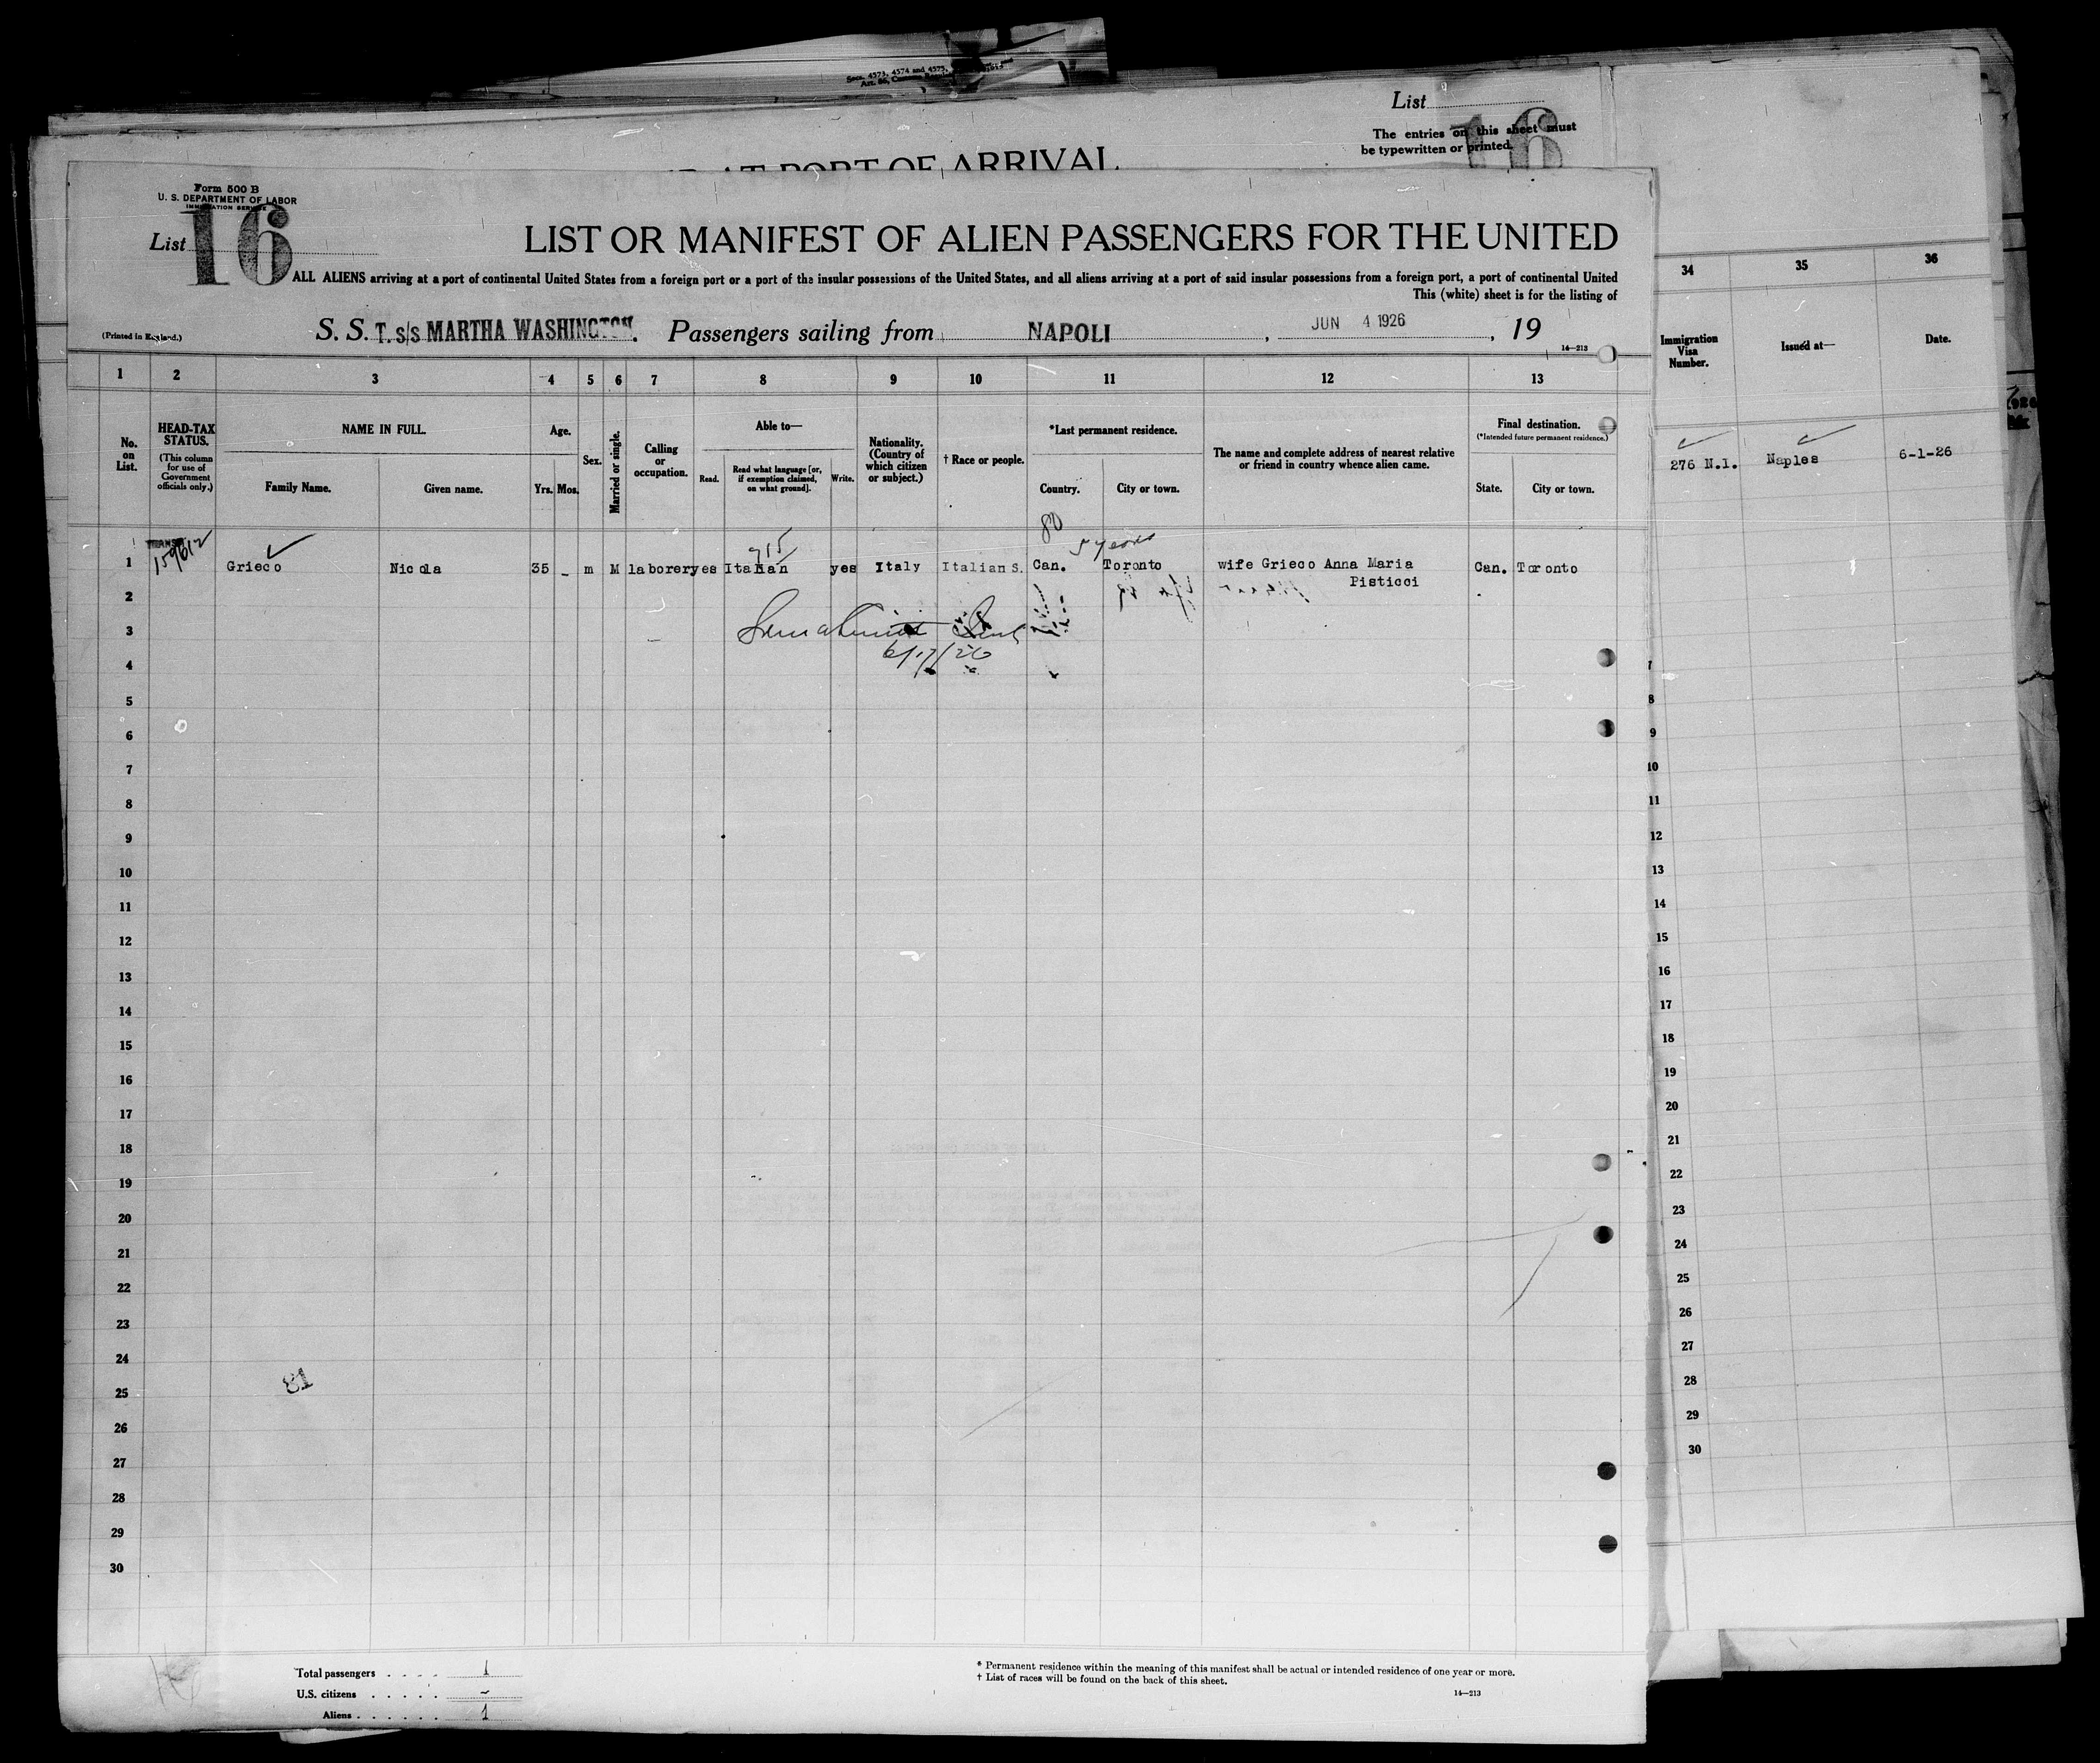 Secs. 4573, 4574 and 4575,
List
16
The entries on this sheet must
be typewritten or printed.
AT PORT OF ARRIVAL
Form 500 B
U. S. DEPARTMENT OF LABOR
IMMIGRATION SERVICE
List 16
LIST OR MANIFEST OF ALIEN PASSENGERS FOR THE UNITED
ALL ALIENS arriving at a port of continental United States from a foreign port or a port of the insular possessions of the United States, and all aliens arriving at a port of said insular possessions from a foreign port, a port of continental United
This (white) sheet is for the listing of
(Printed in England.)
S. S. T. S/S MARTHA WASHINGTON. Passengers sailing from NAPOLI, JUN 4 1926, 19
14—213
1 2 3 4 5 6 7 8 9 10 11 12 13
No. on List.
HEAD-TAX STATUS.
(This column for use of Government officials only.)
NAME IN FULL.
Family Name. Given name.
Age.
Yrs. Mos.
Sex.
Married or single.
Calling or occupation.
Able to—
Read. Read what language [or, if exemption claimed, on what ground]. Write.
Nationality. (Country of which citizen or subject.)
† Race or people.
*Last permanent residence.
Country. City or town.
The name and complete address of nearest relative or friend in country whence alien came.
Final destination.
(*Intended future permanent residence.)
State. City or town.
34 35 36
Immigration Visa Number.
Issued at—
Date.
276 N.I. Naples 6-1-26
80
5 years
915
159612
1 Grieco Nicola 35 - m M laborer yes Italian yes Italy Italian S. Can. Toronto wife Grieco Anna Maria Can. Toronto
Pisticci
2
3
6/17/26
4
5
6
7
8
9
10
11
12
13
14
15
16
17
18
19
20
21
22
23
24
81
25
26
27
28
29
30
7
8
9
10
11
12
13
14
15
16
17
18
19
20
21
22
23
24
25
26
27
28
29
30
Total passengers . . . . 1
U.S. citizens . . . . . -
Aliens . . . . . . 1
* Permanent residence within the meaning of this manifest shall be actual or intended residence of one year or more.
† List of races will be found on the back of this sheet.
14—213